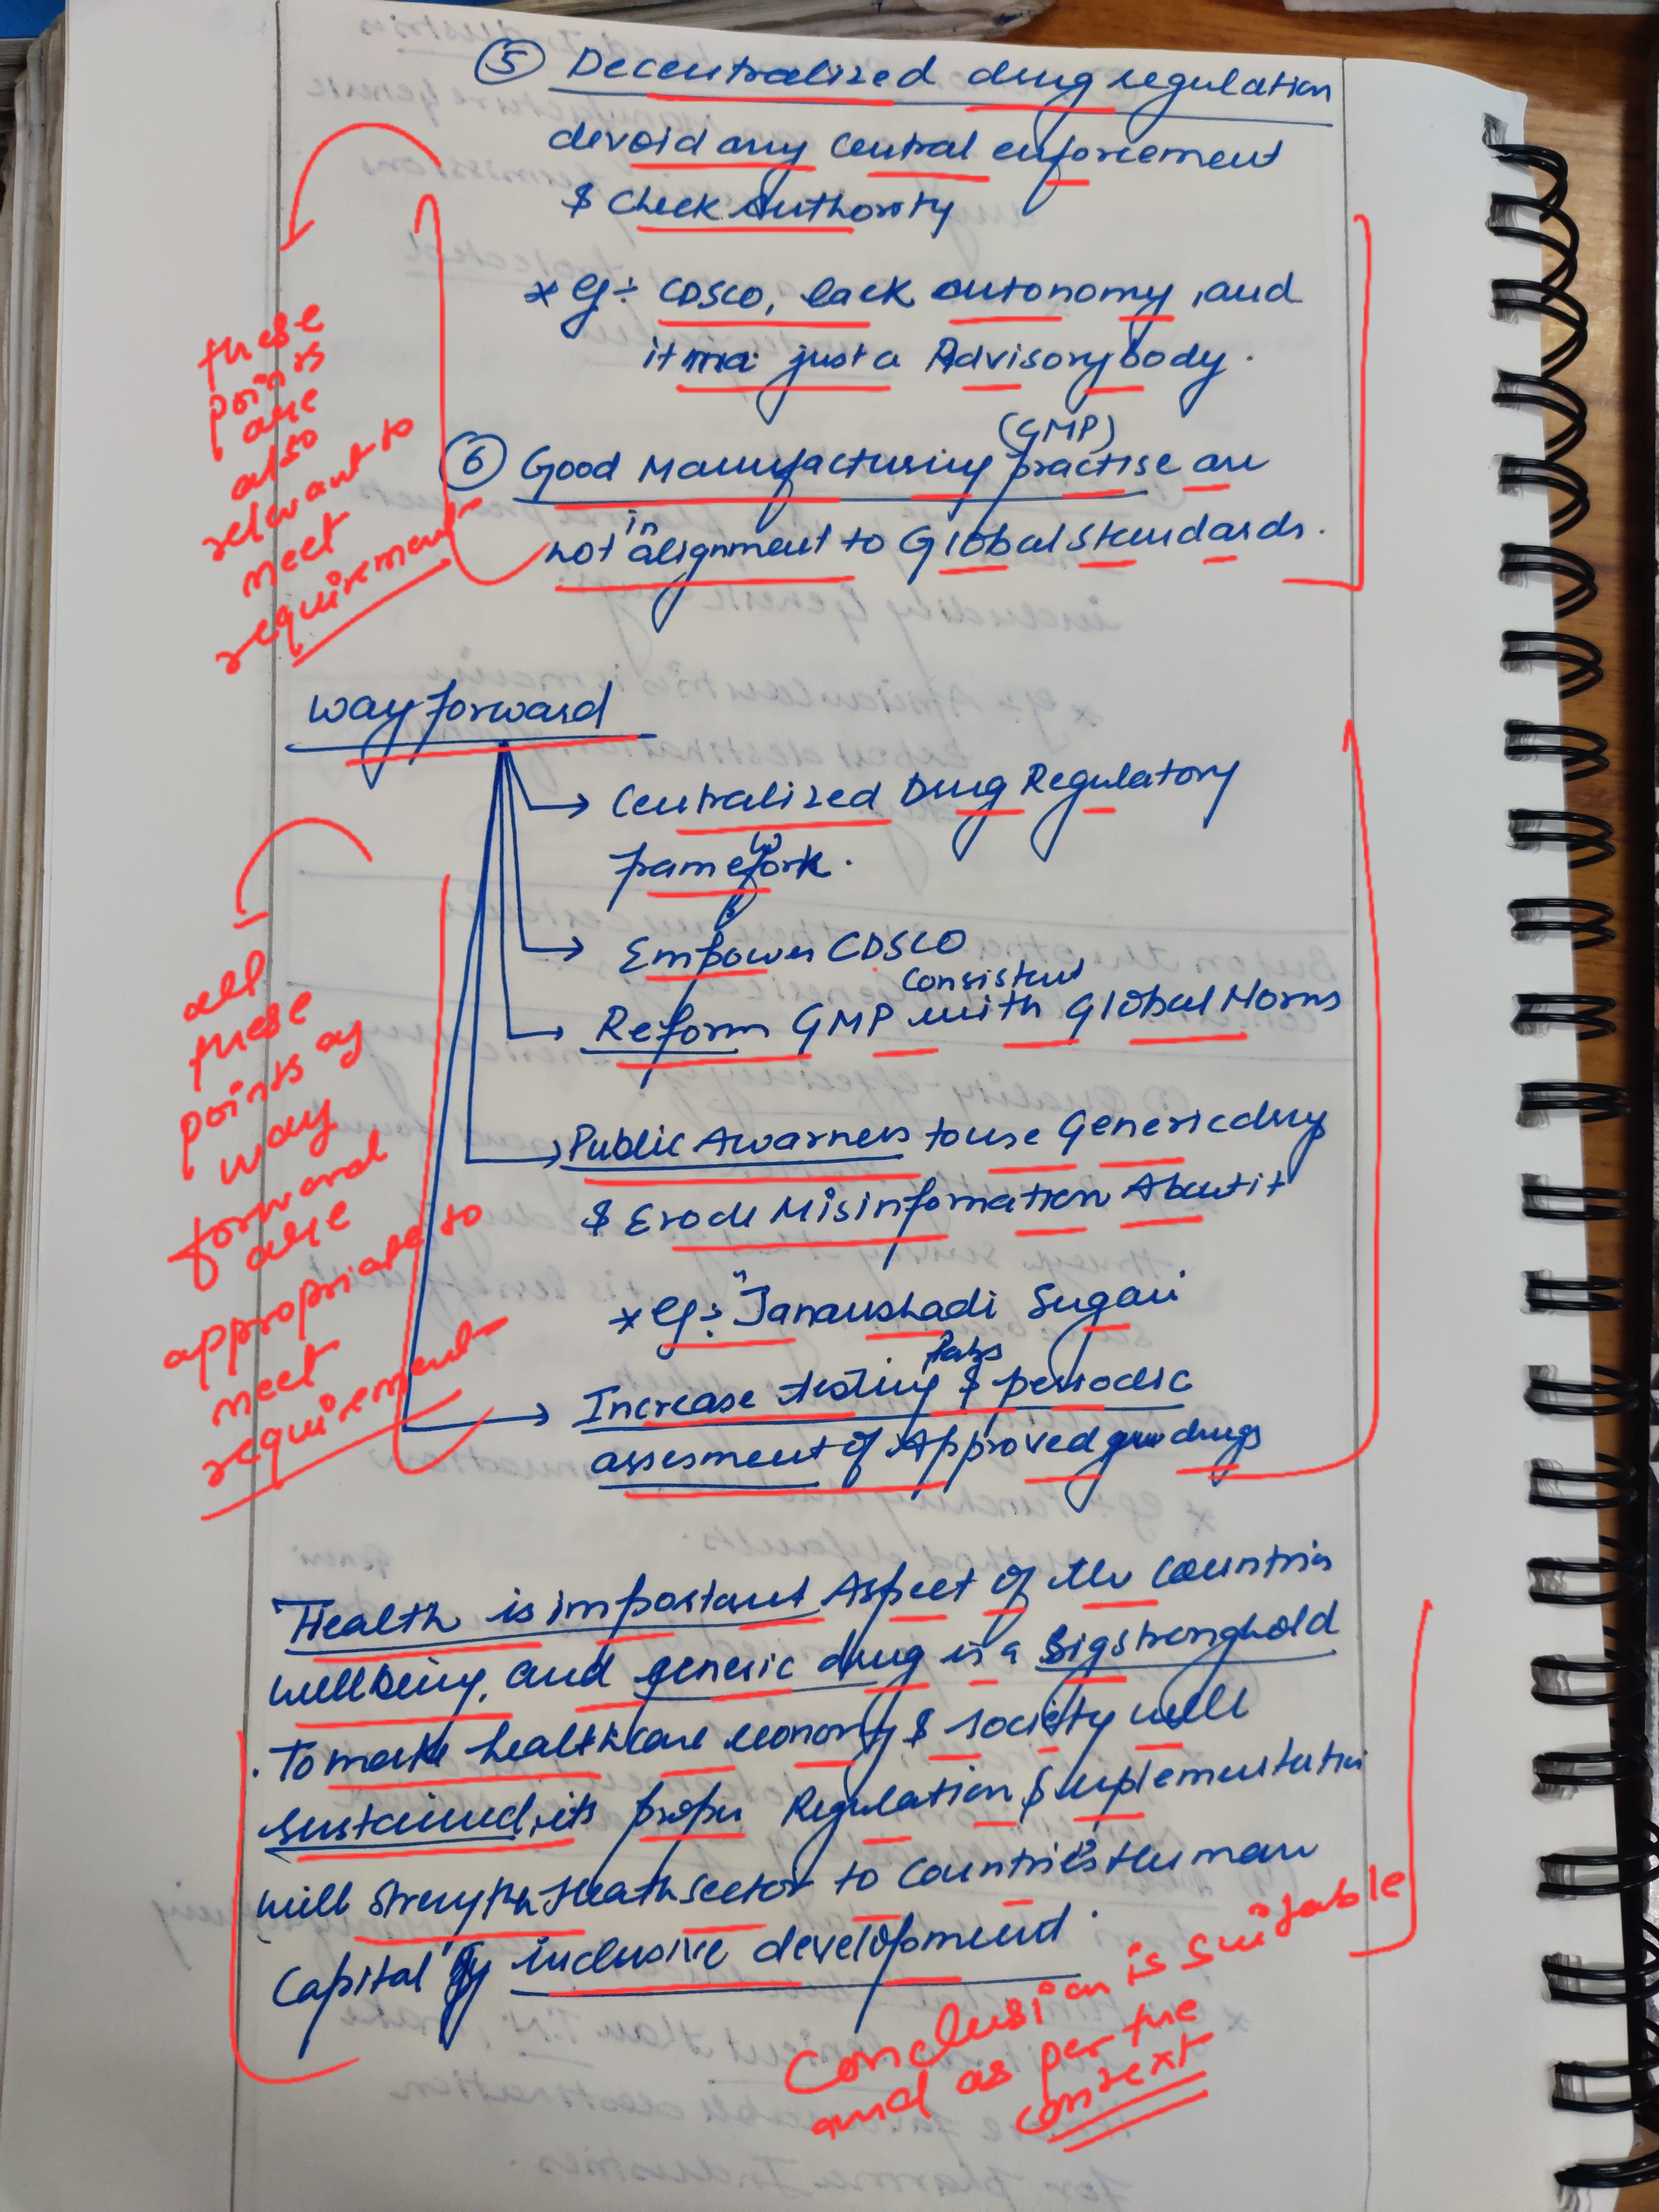 ⑤ Decentralized drug regulation
devoid any Central enforcement
& Check Authority
* eg:- CDSCO, lack autonomy, and
it just a Advisory body.
(GMP)
⑥ Good Manufacturing practise are
in
not alignment to Global Standards.
these
points
are
also
relevant to
meet
requirement
Way forward
→ Centralized Drug Regulatory
framework.
→ Empower CDSCO
Consistent
→ Reform GMP with Global Norms
→ Public Awarness to use Generic drug
& Erode Misinformation About it
* eg:- "Janaushadi Sugam"
labs
→ Increase testing & periodic
assesment of Approved drugs
all
these
points of
way
forward
are
appropriate to
meet
requirement
Health is important Aspect of the Countries
wellbeing, and generic drug is a big stronghold
To make healthcare economy & society well
sustained, its proper Regulation & implementation
will Strengthn Heath sector to Countries Human
Capital inclusive development.
Conclusion is suitable
and as per the
context